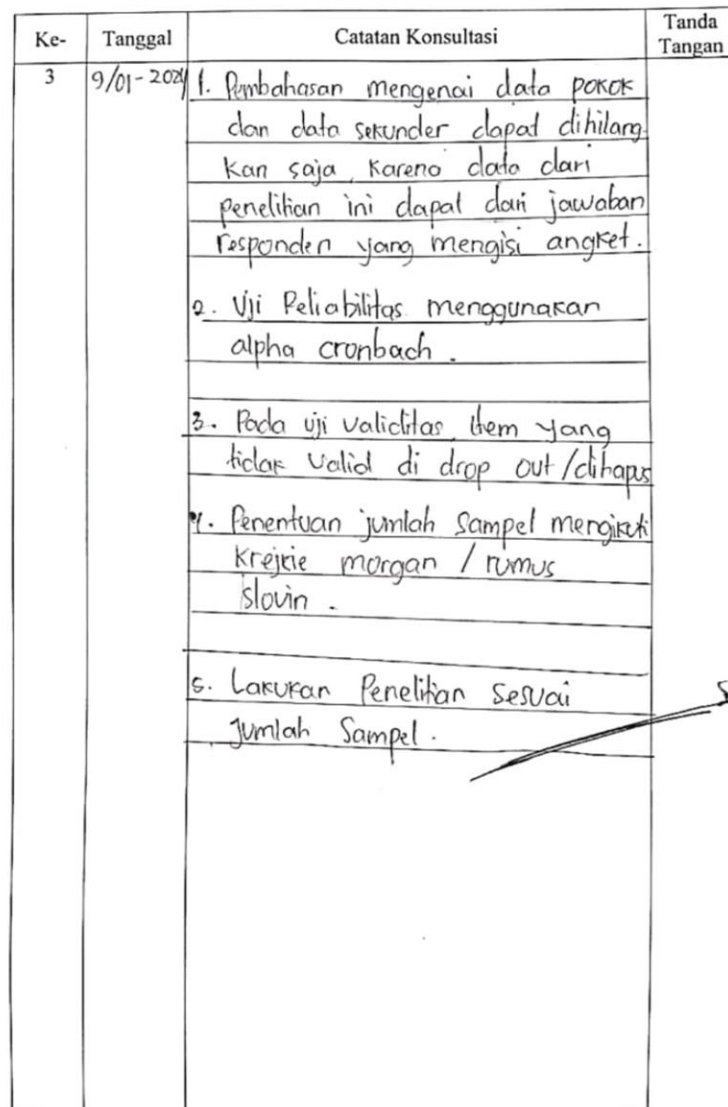 Ke- Tanggal Catatan Konsultasi Tanda Tangan
3 9/01-2024 1. Pembahasan mengenai data pokok
dan data sekunder dapat dihilang
kan saja, karena data dari
penelitian ini dapat dari jawaban
responden yang mengisi angket.
2. Uji Reliabilitas menggunakan
alpha cronbach.
3. Pada uji validitas, item yang
tidak valid di drop out/dihapus
4. Penentuan jumlah sampel mengikuti
krejcie morgan / rumus
slovin.
5. Lakukan Penelitian sesuai
Jumlah Sampel.